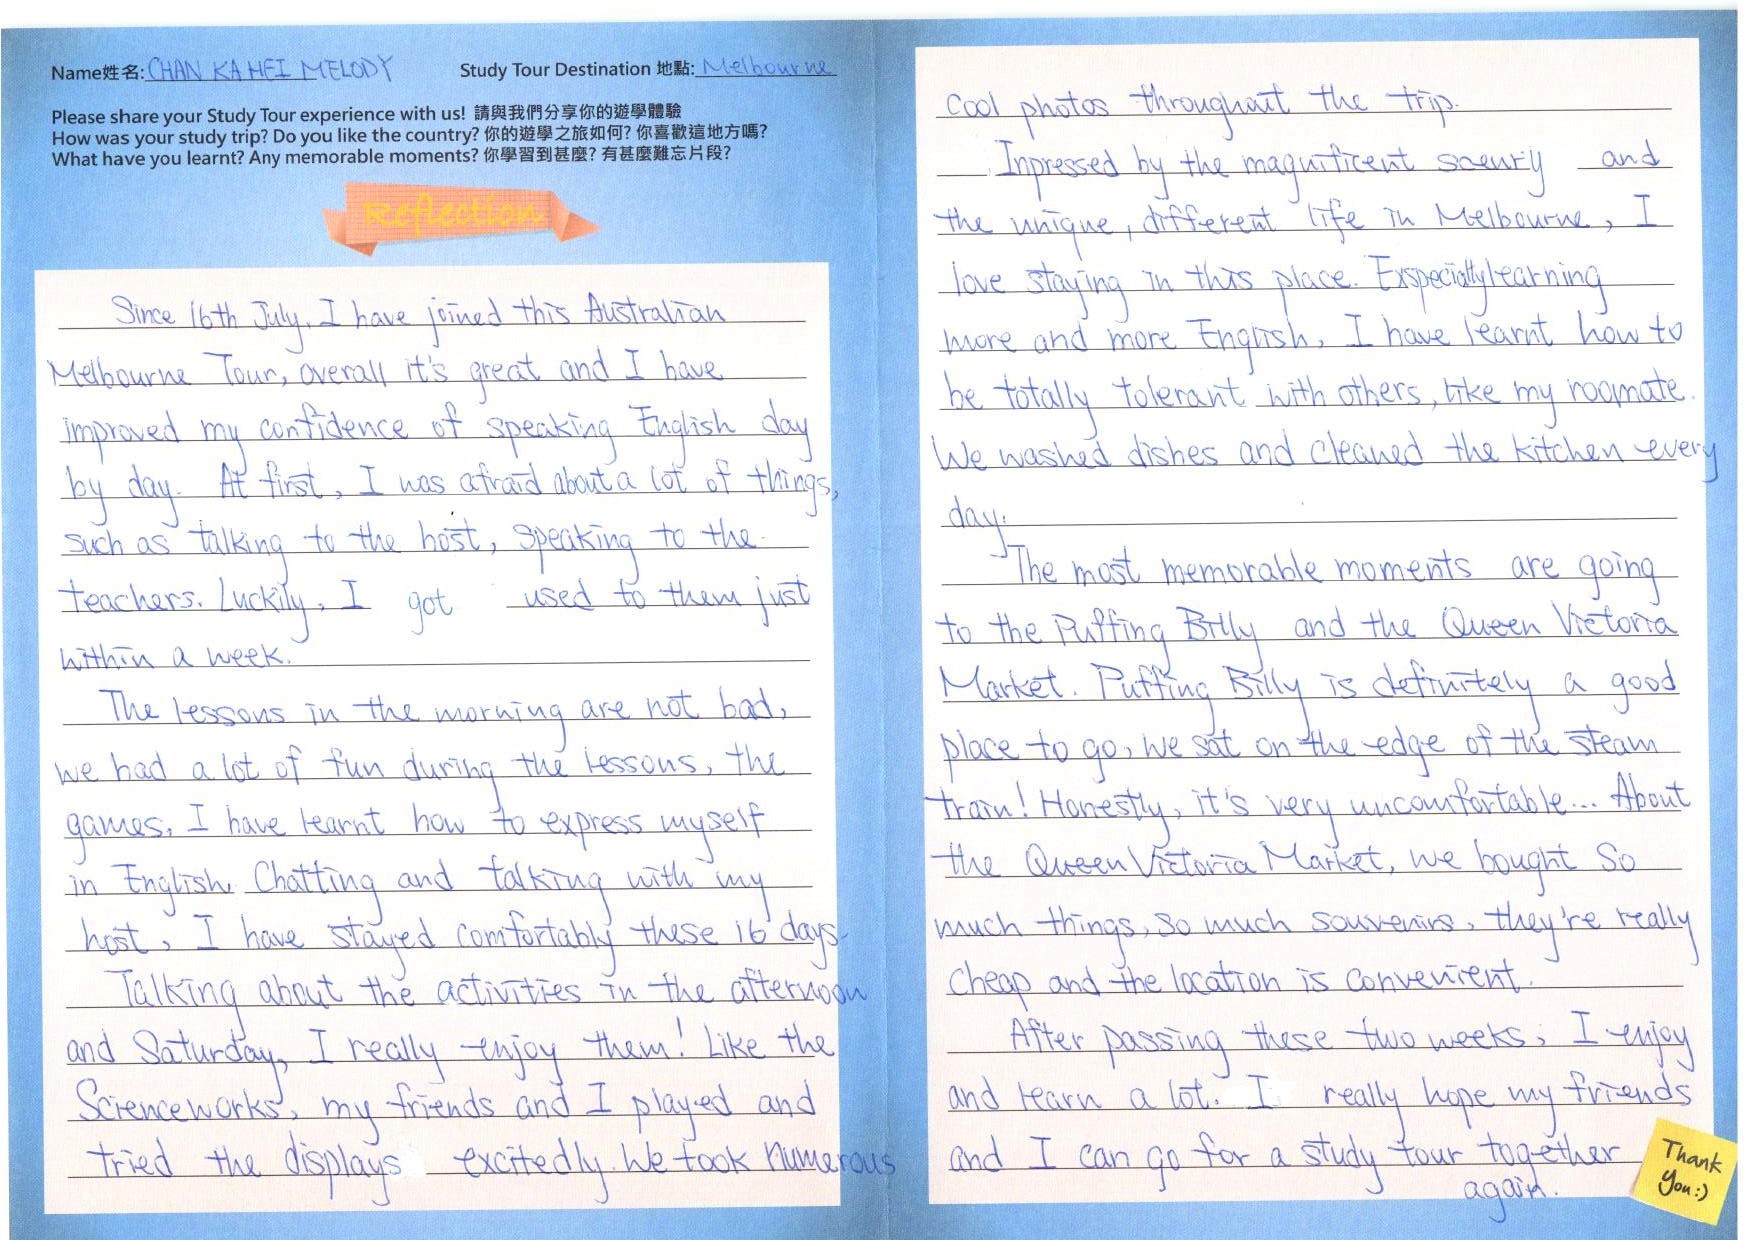 Name姓名: CHAN KA HEI MELODY Study Tour Destination 地點: Melbourne
Please share your Study Tour experience with us! 請與我們分享你的遊學體驗
How was your study trip? Do you like the country? 你的遊學之旅如何? 你喜歡這地方嗎?
What have you learnt? Any memorable moments? 你學習到甚麼? 有甚麼難忘片段?
Reflection
Since 16th July, I have joined this Australian
Melbourne Tour, overall it's great and I have
improved my confidence of speaking English day
by day. At first, I was afraid about a lot of things,
such as talking to the host, speaking to the
teachers. Luckily, I got used to them just
within a week.
The lessons in the morning are not bad,
we had a lot of fun during the lessons, the
games, I have learnt how to express myself
in English. Chatting and talking with my
host, I have stayed comfortably these 16 days.
Talking about the activities in the afternoon
and Saturday, I really enjoy them! Like the
Scienceworks, my friends and I played and
tried the displays excitedly. We took numerous
cool photos throughout the trip.
Inpressed by the magnificent scenriy and
the unique, different life in Melbourne, I
love staying in this place. Exspecially learning
more and more English, I have learnt how to
be totally tolerant with others, like my roomate.
We washed dishes and cleaned the kitchen every
day.
The most memorable moments are going
to the Puffing Billy and the Queen Victoria
Market. Puffing Billy is definitely a good
place to go, we sat on the edge of the steam
train! Honestly, it's very uncomfortable... About
the Queen Victoria Market, we bought so
much things, so much souvenirs, they're really
cheap and the location is convenient.
After passing these two weeks, I enjoy
and learn a lot. I really hope my friends
and I can go for a study tour together
again.
Thank
You:)